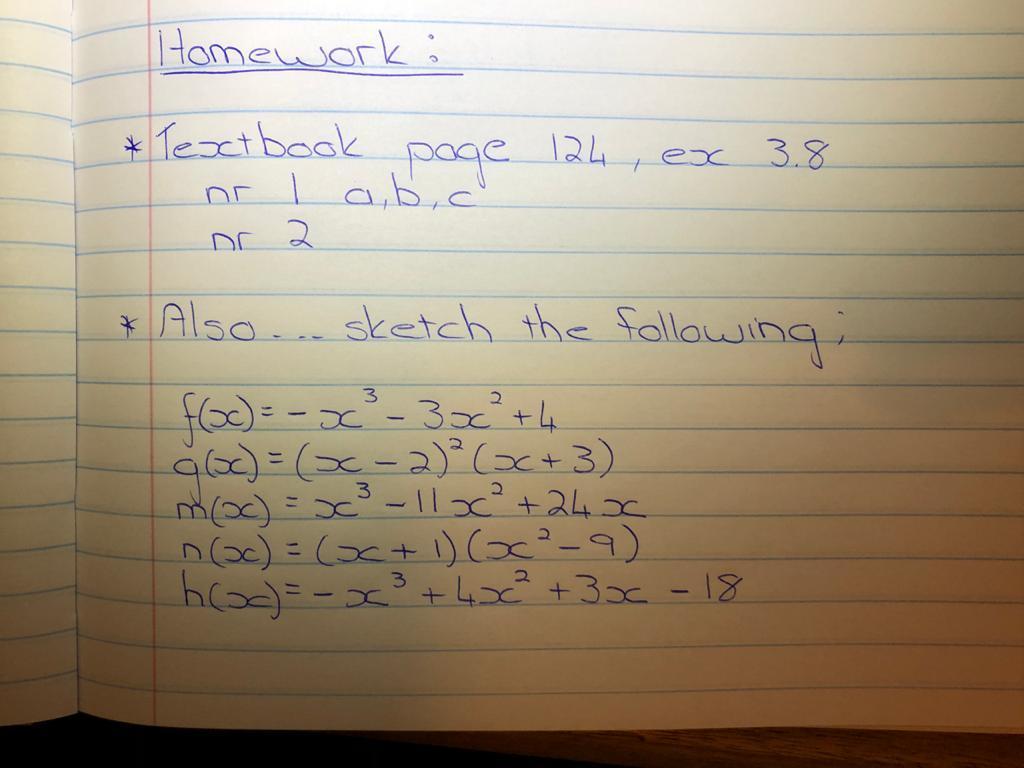 Homework :
* Textbook page 124, ex 3.8
nr 1 a,b,c
nr 2
* Also... sketch the following;
f(x) = -x³ - 3x² + 4
g(x) = (x - 2)² (x + 3)
m(x) = x³ - 11x² + 24x
n(x) = (x + 1)(x² - 9)
h(x) = -x³ + 4x² + 3x - 18